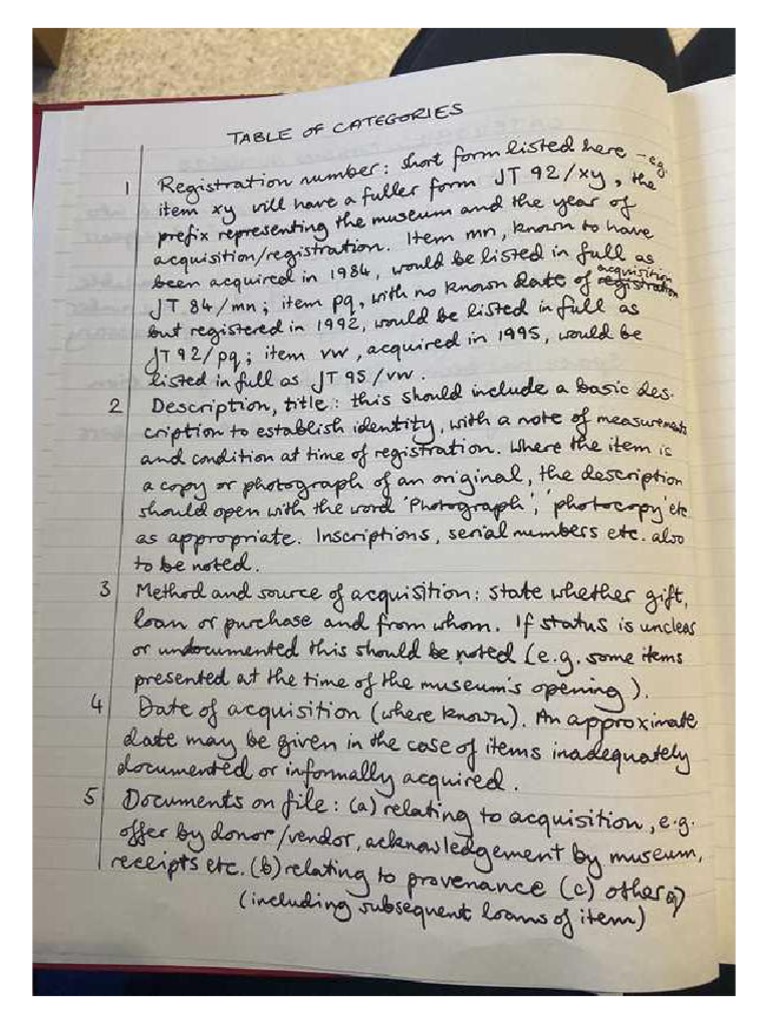 TABLE OF CATEGORIES
1 Registration number: short form listed here - eg.
item xy will have a fuller form JT 92/xy, the
prefix representing the museum and the year of
acquisition/registration. Item mn, known to have
been acquired in 1984, would be listed in full as
JT 84/mn; item pq, with no known date of registration acquisition
but registered in 1992, would be listed in full as
JT92/pq; item vw, acquired in 1995, would be
listed in full as JT 95/vw.
2 Description, title: this should include a basic des-
cription to establish identity, with a note of measurements
and condition at time of registration. Where the item is
a copy or photograph of an original, the description
should open with the word 'Photograph', 'photocopy' etc
as appropriate. Inscriptions, serial numbers etc. also
to be noted.
3 Method and source of acquisition: state whether gift,
loan or purchase and from whom. If status is unclear
or undocumented this should be noted (e.g. some items
presented at the time of the museum's opening).
4 Date of acquisition (where known). An approximate
date may be given in the case of items inadequately
documented or informally acquired.
5 Documents on file: (a) relating to acquisition, e.g.
offer by donor/vendor, acknowledgement by museum,
receipts etc. (b) relating to provenance (c) other
(including subsequent loans of item)